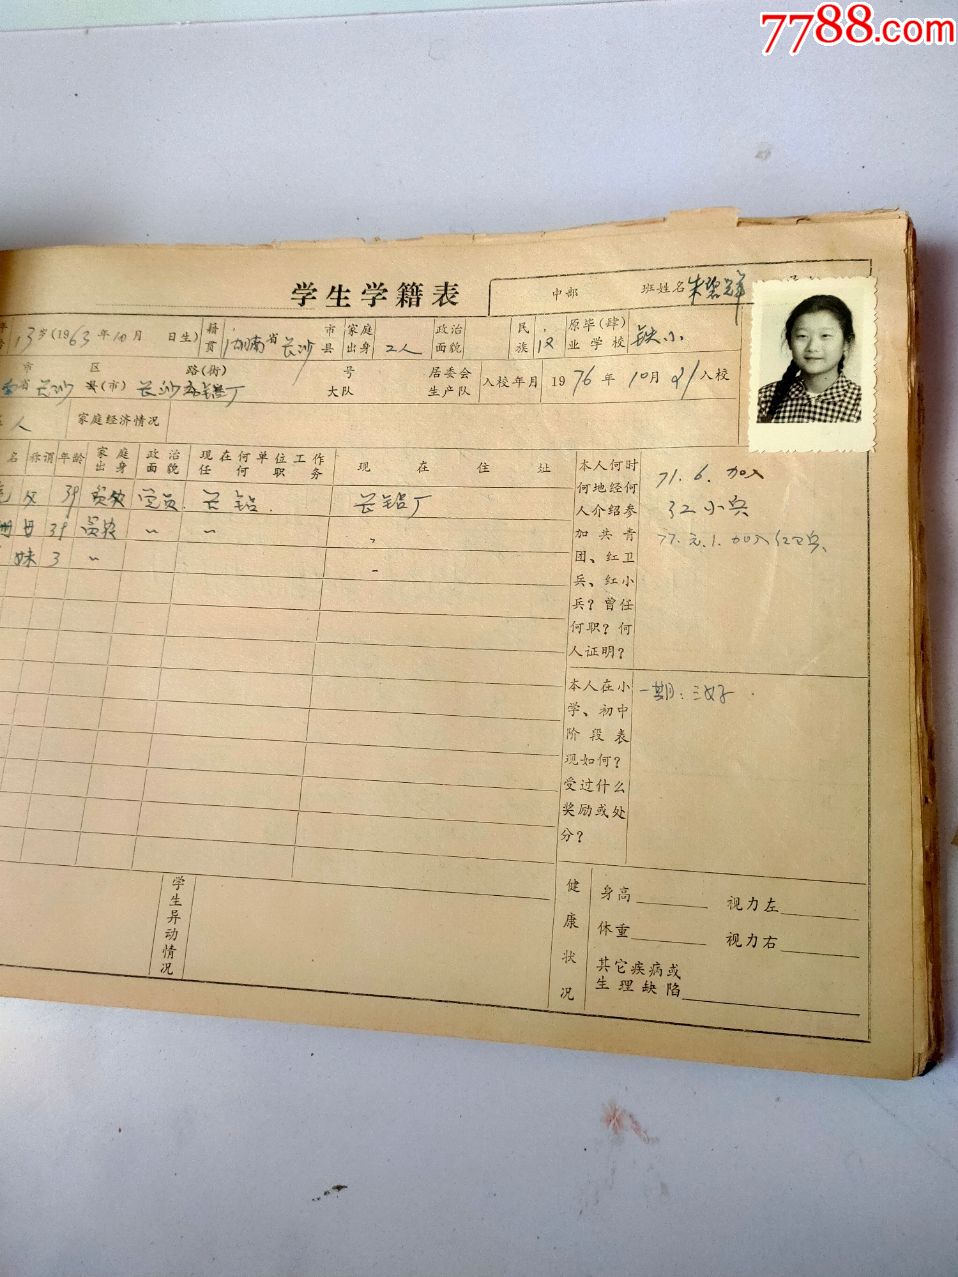 7788.com
学生学籍表
中部 班姓名 朱
年 13岁(1963年10月 日生) 籍贯 湖南省长沙市县 家庭出身 工人 政治面貌 民族 汉 原毕(肆)业学校 铁小
市 区 路(街) 号 居委会
省长沙县(市) 长沙 厂 大队 生产队 入校年月 1976年10月21入校
人 家庭经济情况
名 称谓 年龄 家庭出身 政治面貌 现在何单位工作任何职务 现在住址
父 39 贫农 党员 长铝 长铝厂
母 39 贫农 〃 〃 〃
妹 3 〃 〃
本人何时何地经何人介绍参加共青团、红卫兵、红小兵?曾任何职?何人证明?
71.6.加入
红小兵
77.元.1.加入红卫兵
本人在小学、初中阶段表现如何?受过什么奖励或处分?
一期:三好.
学生异动情况
健康状况
身高 视力左
体重 视力右
其它疾病或生理缺陷